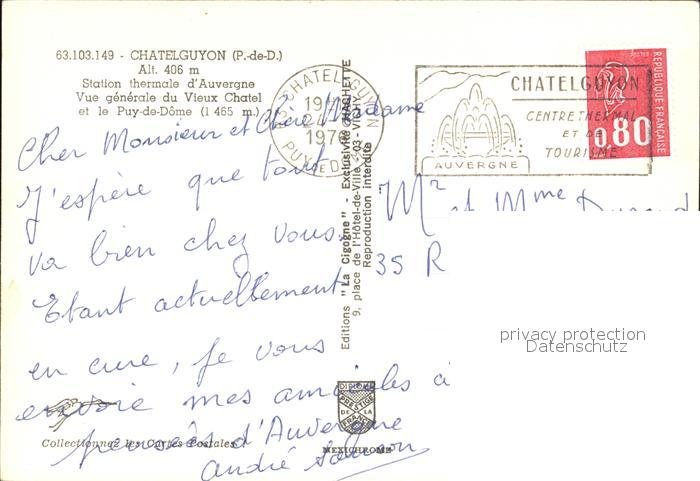 63.103.149 - CHATELGUYON (P.-de-D.)
Alt. 406 m
Station thermale d'Auvergne
Vue générale du Vieux Chatel
et le Puy-de-Dôme (1 465 m.)
Cher Monsieur et Chère Madame
J'espère que tout
va bien chez vous.
Etant actuellement
en cure, je vous
envoie mes amicales
pensées d'Auvergne
André
Collectionnez les Cartes Postales
Editions "La Cigogne" - Exclusivité HACHETTE
9, place de l'Hôtel-de-Ville - 03-VICHY
Reproduction interdite
DIPLOME
PRESTIGE
DE LA
FRANCE
MEXICHROME
CHATELGUYON
19
24
1976
PUY DE D
CHATELGUYON
CENTRE THERMAL
ET DE
TOURISME
AUVERGNE
POSTES
REPUBLIQUE FRANÇAISE
0,80
Mr et Mme
35 R
privacy protection
Datenschutz